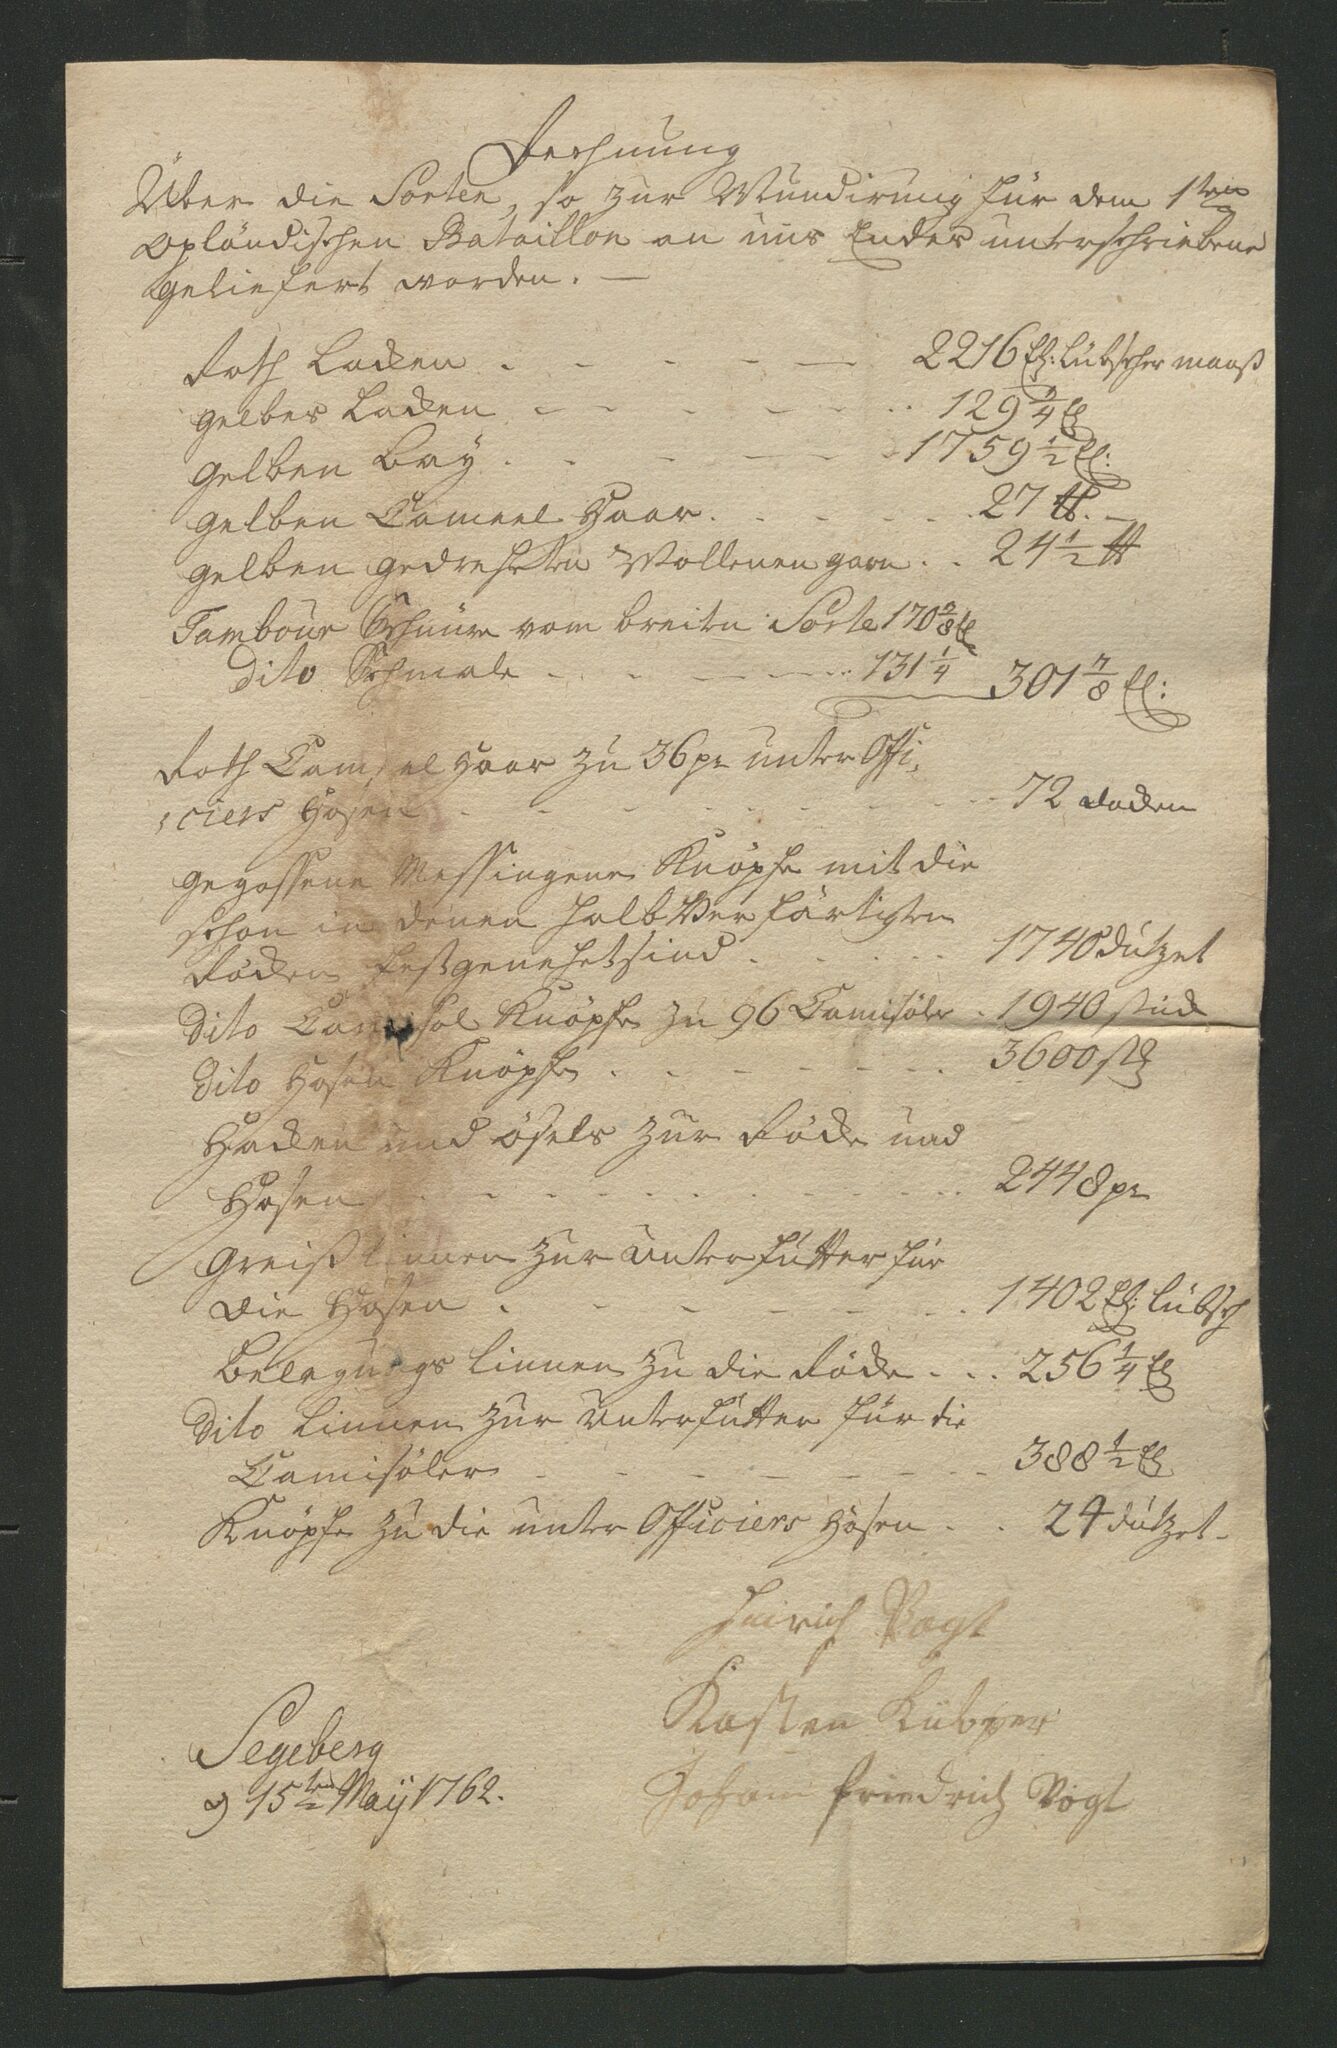 Rechnung
Über die Sorten, so zur Mundirung für dem 1sten
Opländischen Bataillon an uns Endes unterschriebene
geliefert worden. —
Roth Lacken . - - - — 2216 El: Lübscher maaß
gelber Lacken - - - - - . . 129 3/4 El
gelben Bay . - - - - 1759 1/2 El:
gelben Cameel Haar . . - - . . 27 ℔. —
gelben gedrehten Wollenen garn . . 24 1/2 ℔
Tambour Schnüre vom breiten Sorte 170 5/8 El
Dito Schmale . . - - - . . 131 1/4 301 7/8 El:
Roth Cameel Haar zu 36 pr unter Offi-
ciers Hosen . - - - - - - . . 72 Locken
gegossene Messingene Knöpfe mit die
schon in denen halb Verfärtigten
Röcken festgenehet sind . . . . . 1740 dutzet
Dito Camisol Knöpfe zu 96 Camisöler . 1940 stück
Dito Hosen Knöpfe . - - - - - . . 3600 stk
Hacken und ösels zur Röcke und
Hosen . - - - - - - - . . 2448 pr
Greiß linnen zur Unterfutter für
die Hosen . - - - - - . . 1402 El: Lübsch
Belegungs linnen zu die Röcke . . . 256 1/4 El
Dito Linnen zur Unterfutter für die
Camisöler - - - - - - - 388 1/2 El
Knöpfe zu die unter Officiers Hosen . . 24 dutzet -
Hinrich Vogt
Kasten Lübper
Segeberg
d 15ten Maÿ 1762.
Johann Friedrich Vogt